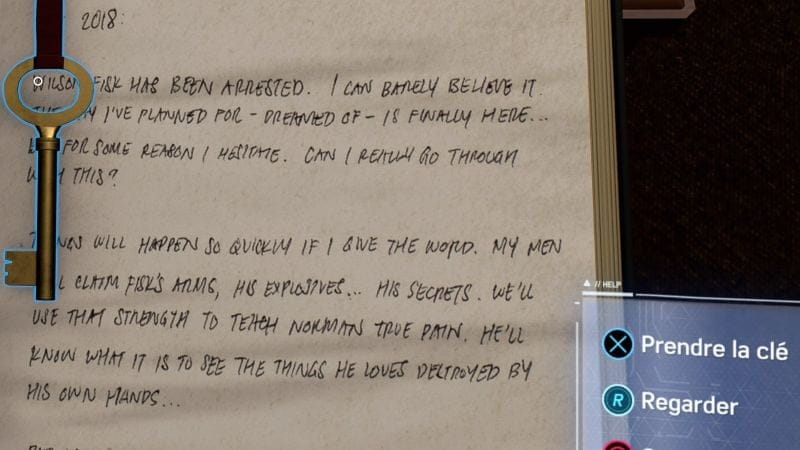 2018:
WILSON FISK HAS BEEN ARRESTED. I CAN BARELY BELIEVE IT.
I'VE PLANNED FOR – DREAMED OF – IS FINALLY HERE...
FOR SOME REASON I HESITATE. CAN I REALLY GO THROUGH
THIS?
WILL HAPPEN SO QUICKLY IF I GIVE THE WORD. MY MEN
CLAIM FISK'S ARMS, HIS EXPLOSIVES... HIS SECRETS. WE'LL
USE THAT STRENGTH TO TEACH NORMAN TRUE PAIN. HE'LL
KNOW WHAT IT IS TO SEE THE THINGS HE LOVES DESTROYED BY
HIS OWN HANDS...
// HELP
Prendre la clé
R Regarder